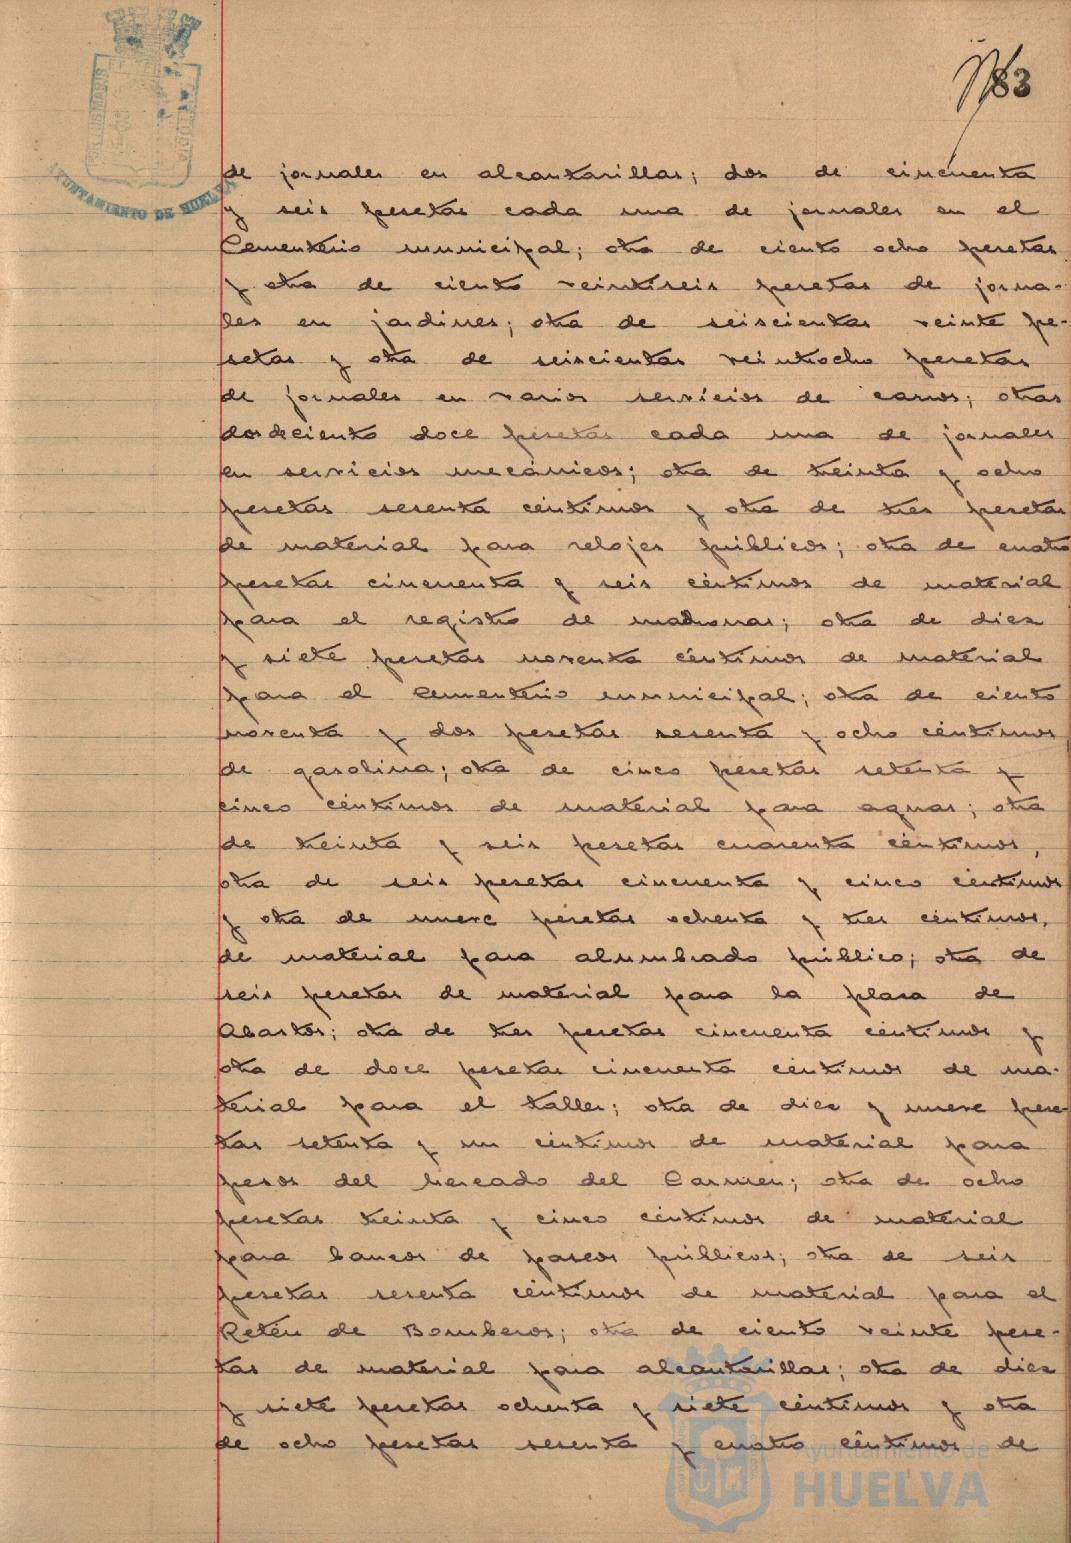 83
PORTUS MARIS
CUSTODIA
AYUNTAMIENTO DE HUELVA
de jornales en alcantarillas; dos de cincuenta
y seis pesetas cada una de jornales en el
Cementerio municipal; otra de ciento ocho pesetas
y otra de ciento veintiseis pesetas de jorna-
les en jardines; otra de seiscientas veinte pe-
setas y otra de seiscientas veintiocho pesetas
de jornales en varios servicios de carros; otras
dos de ciento doce pesetas cada una de jornales
en servicios mecánicos; otra de treinta y ocho
pesetas sesenta céntimos y otra de tres pesetas
de material para relojes públicos; otra de cuatro
pesetas cincuenta y seis céntimos de material
para el registro de madronas; otra de diez
y siete pesetas noventa céntimos de material
para el Cementerio municipal; otra de ciento
noventa y dos pesetas sesenta y ocho céntimos,
de gasolina; otra de cinco pesetas setenta y
cinco céntimos de material para aguas; otra
de treinta y seis pesetas cuarenta céntimos,
otra de seis pesetas cincuenta y cinco céntimos
y otra de nueve pesetas ochenta y tres céntimos,
de material para alumbrado público; otra de
seis pesetas de material para la plaza de
Abastos; otra de tres pesetas cincuenta céntimos y
otra de doce pesetas cincuenta céntimos de ma-
terial para el taller; otra de diez y nueve pese-
tas setenta y un céntimos de material para
pesos del Mercado del Carmen; otra de ocho
pesetas treinta y cinco céntimos de material
para bancos de paseos públicos; otra de seis
pesetas sesenta céntimos de material para el
Retén de Bomberos; otra de ciento veinte pese-
tas de material para alcantarillas; otra de diez
y siete pesetas ochenta y siete céntimos y otra
de ocho pesetas sesenta y cuatro céntimos de
Ayuntamiento de
HUELVA